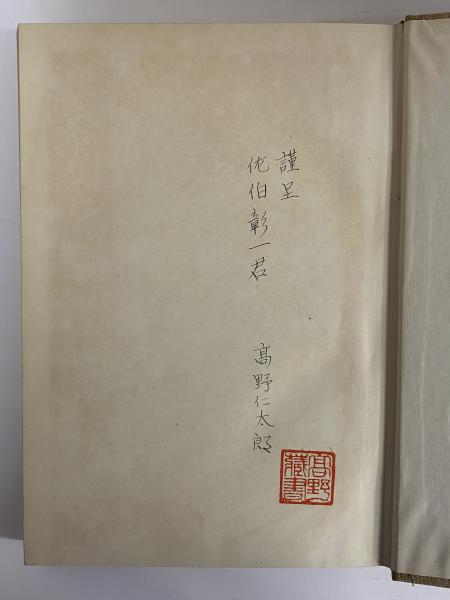 謹呈
佐伯彰一君
髙野仁太郎
髙野
藏書